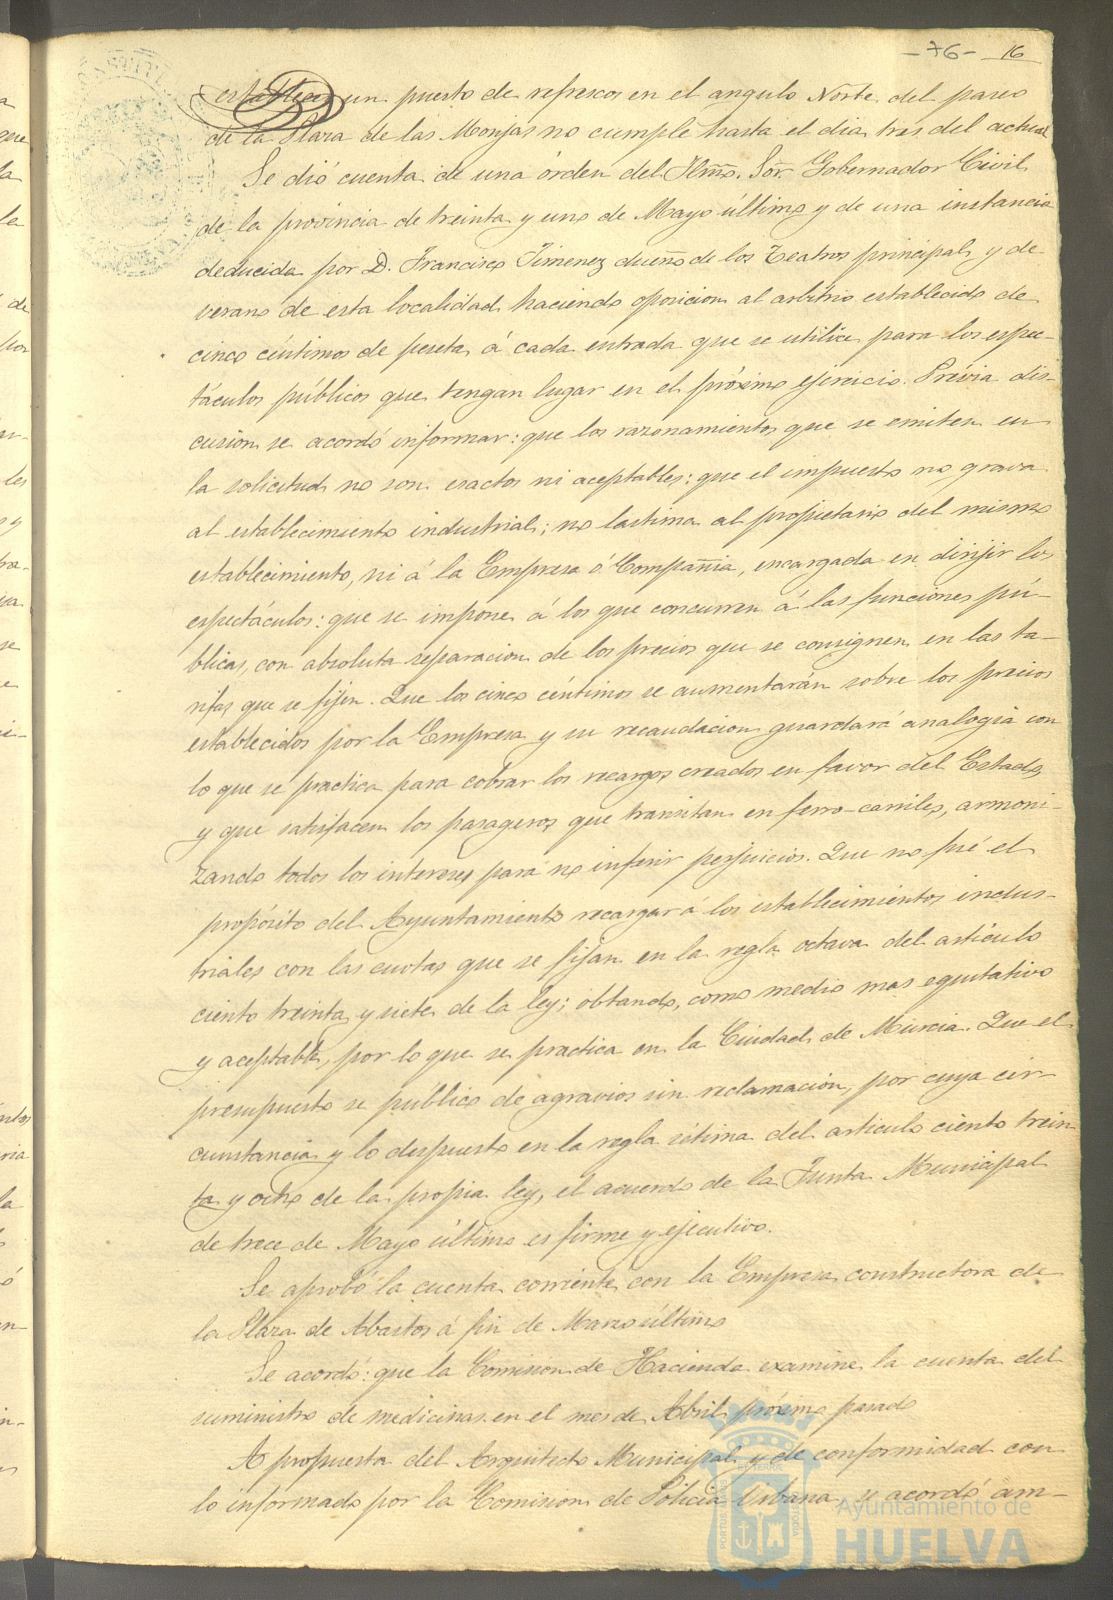 -76- 16
establecer un puesto de refrescos en el angulo Norte del paseo
de la Plaza de las Monjas no cumple hasta el dia tres del actual
Se dió cuenta de una órden del Iltmo. Sor. Gobernador Civil
de la provincia de treinta y uno de Mayo último y de una instancia
deducida por D. Francisco Jimenez dueño de los Teatros principal y de
verano de esta localidad haciendo oposicion al arbitrio establecido de
cinco céntimos de peseta á cada entrada que se utilice para los espec-
táculos públicos que tengan lugar en el próximo ejercicio. Prévia dis-
cusion se acordó informar: que los razonamientos que se emiten en
la solicitud no son esactos ni aceptables: que el impuesto no grava
al establecimiento industrial; no lastima al propietario del mismo
establecimiento, ni á la Empresa ó Compañia, encargada en dirijir los
espectáculos: que se impone á los que concurren á las funciones pú-
blicas, con absoluta separacion de los precios que se consignen en las ta-
rifas que se fijen. Que los cinco céntimos se aumentarán sobre los precios
establecidos por la Empresa y su recaudacion guardará analogia con
lo que se practica para cobrar los recargos creados en favor del Estado
y que satisfacen los pasageros que transitan en ferro-carriles, armoni-
zando todos los intereses para no inferir perjuicios. Que no fué el
propósito del Ayuntamiento recargar á los establecimientos indus-
triales con las cuotas que se fijan en la regla octava del artículo
ciento treinta y siete de la ley; obtando, como medio mas equitativo
y aceptable, por lo que se practica en la Ciudad de Murcia. Que el
presupuesto se público de agravios sin reclamación, por cuya cir-
cunstancia y lo dispuesto en la regla sétima del articulo ciento trein
ta y ocho de la propia ley, el acuerdo de la Junta Municipal
de trece de Mayo último es firme y ejecutivo.
Se aprobó la cuenta corriente con la Empresa constructora de
la Plaza de Abastos á fin de Marzo último
Se acordó: que la Comision de Hacienda examine la cuenta del
suministro de medicinas en el mes de Abril próximo pasado
A propuesta del Arquitecto Municipal y de conformidad con
lo informado por la Comision de Policia Urbana, se acordó am-
Ayuntamiento de
HUELVA